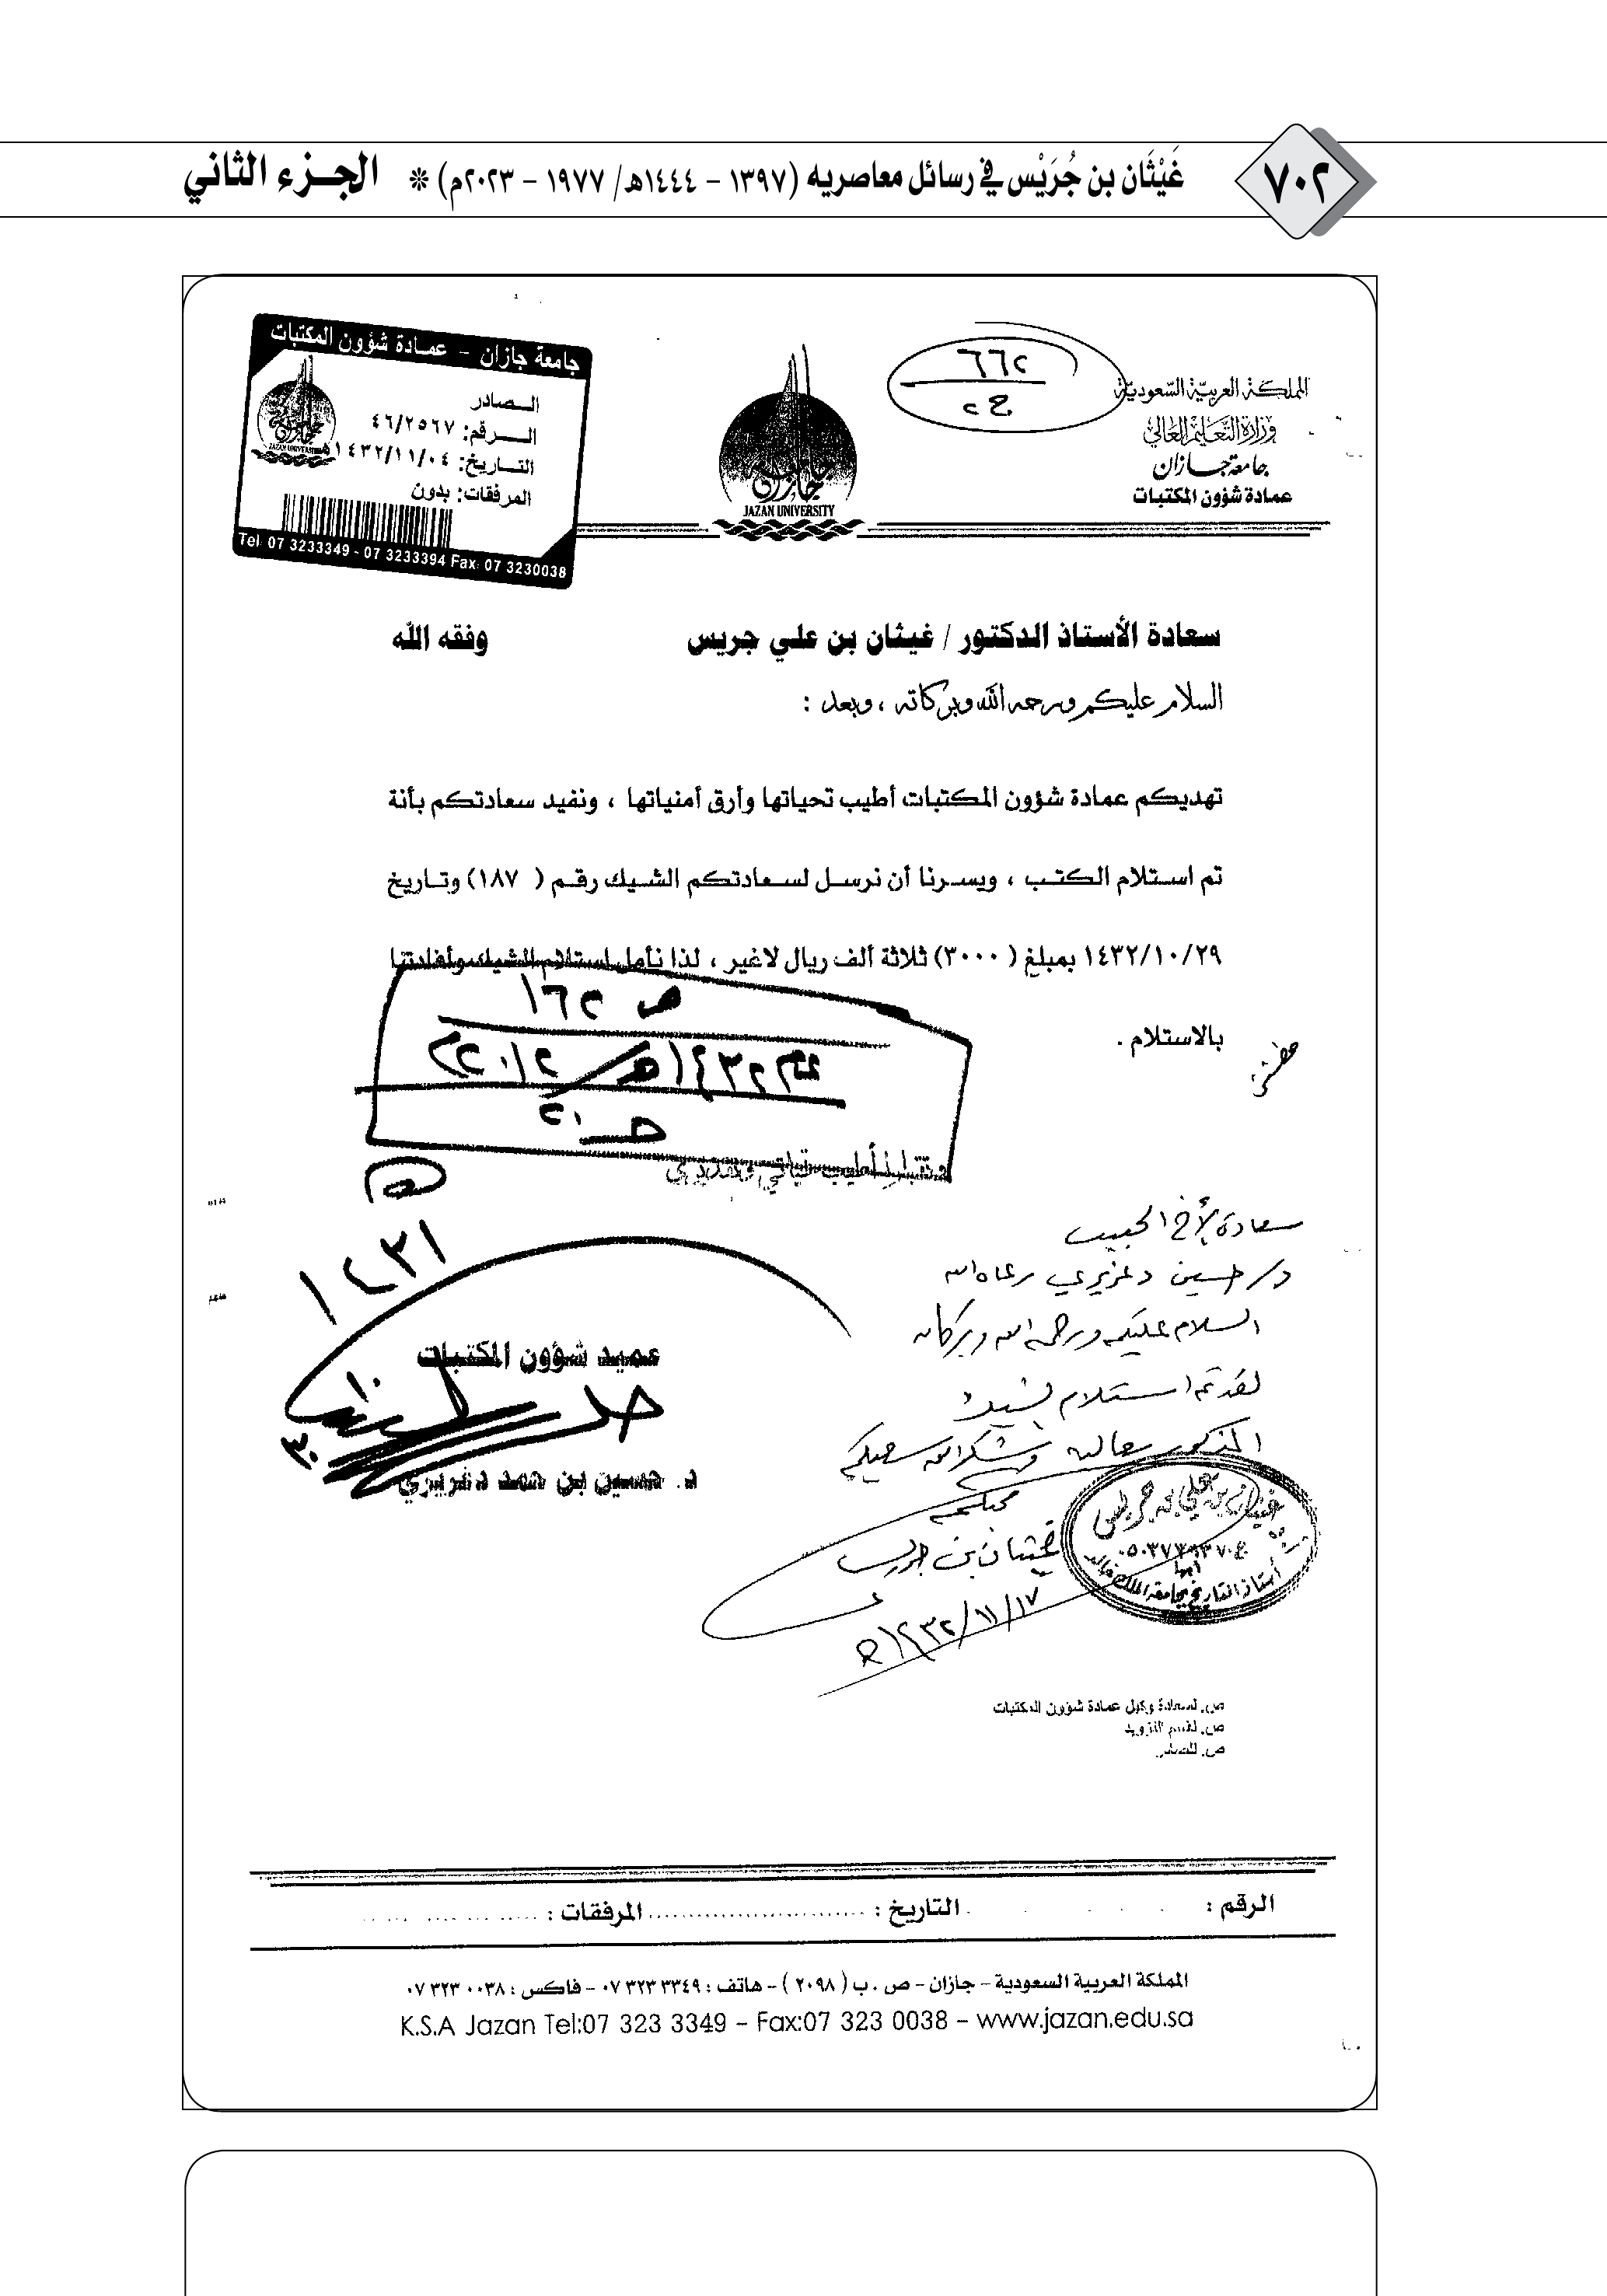 ٧٠٢
غَيْثَان بن جُرَيْس في رسائل معاصريه (١٣٩٧ - ١٤٤٤هـ/ ١٩٧٧ - ٢٠٢٣م) * الجـزء الثاني
المملكة العربية السعودية
وزارة التعليم العالي
جامعة جازان
عمادة شؤون المكتبات
٦٦٢
ج٢
JAZAN UNIVERSITY
جامعة جازان - عمادة شؤون المكتبات
الصادر
الرقم: ٤٦/٢٥٦٧
التاريخ: ١٤٣٢/١١/٠٤هـ
المرفقات: بدون
JAZAN UNIVERSITY
Tel: 07 3233349 - 07 3233394 Fax: 07 3230038
سعادة الأستاذ الدكتور / غيثان بن علي جريس وفقه الله
السلام عليكم ورحمة الله وبركاته ، وبعد :
تهديكم عمادة شؤون المكتبات أطيب تحياتها وأرق أمنياتها ، ونفيد سعادتكم بأنة
تم استلام الكتب ، ويسرنا أن نرسل لسعادتكم الشيك رقم ( ١٨٧) وتاريخ
١٤٣٢/١٠/٢٩ بمبلغ ( ٣٠٠٠) ثلاثة ألف ريال لاغير ، لذا نأمل استلام الشيك وأفادتنا
بالاستلام .
ص ١٦٢
وتقبلوا أطيب تحياتي وتقديري
سعادة الأخ الحبيب
د/ حسين دغريري رعاه الله
السلام عليكم ورحمة الله وبركاته
لقد تم استلام الشيك
المذكور بعاليه وشكر الله سعيكم
محبكم
غيثان بن جريس
١٤٣٢/١١/١٧هـ
غيثان بن علي بن جريس
أبها
أستاذ التاريخ بجامعة الملك خالد
عميد شؤون المكتبات
د. حسين بن حمد دغريري
ص. لسعادة وكيل عمادة شؤون المكتبات
ص. لقسم التزويد
ص. للصادر
الرقم : التاريخ : المرفقات :
المملكة العربية السعودية - جازان - ص . ب ( ٢٠٩٨ ) - هاتف : ٣٣٤٩ ٣٢٣ ٠٧ - فاكس : ٠٠٣٨ ٣٢٣ ٠٧
K.S.A Jazan Tel:07 323 3349 - Fax:07 323 0038 - www.jazan.edu.sa